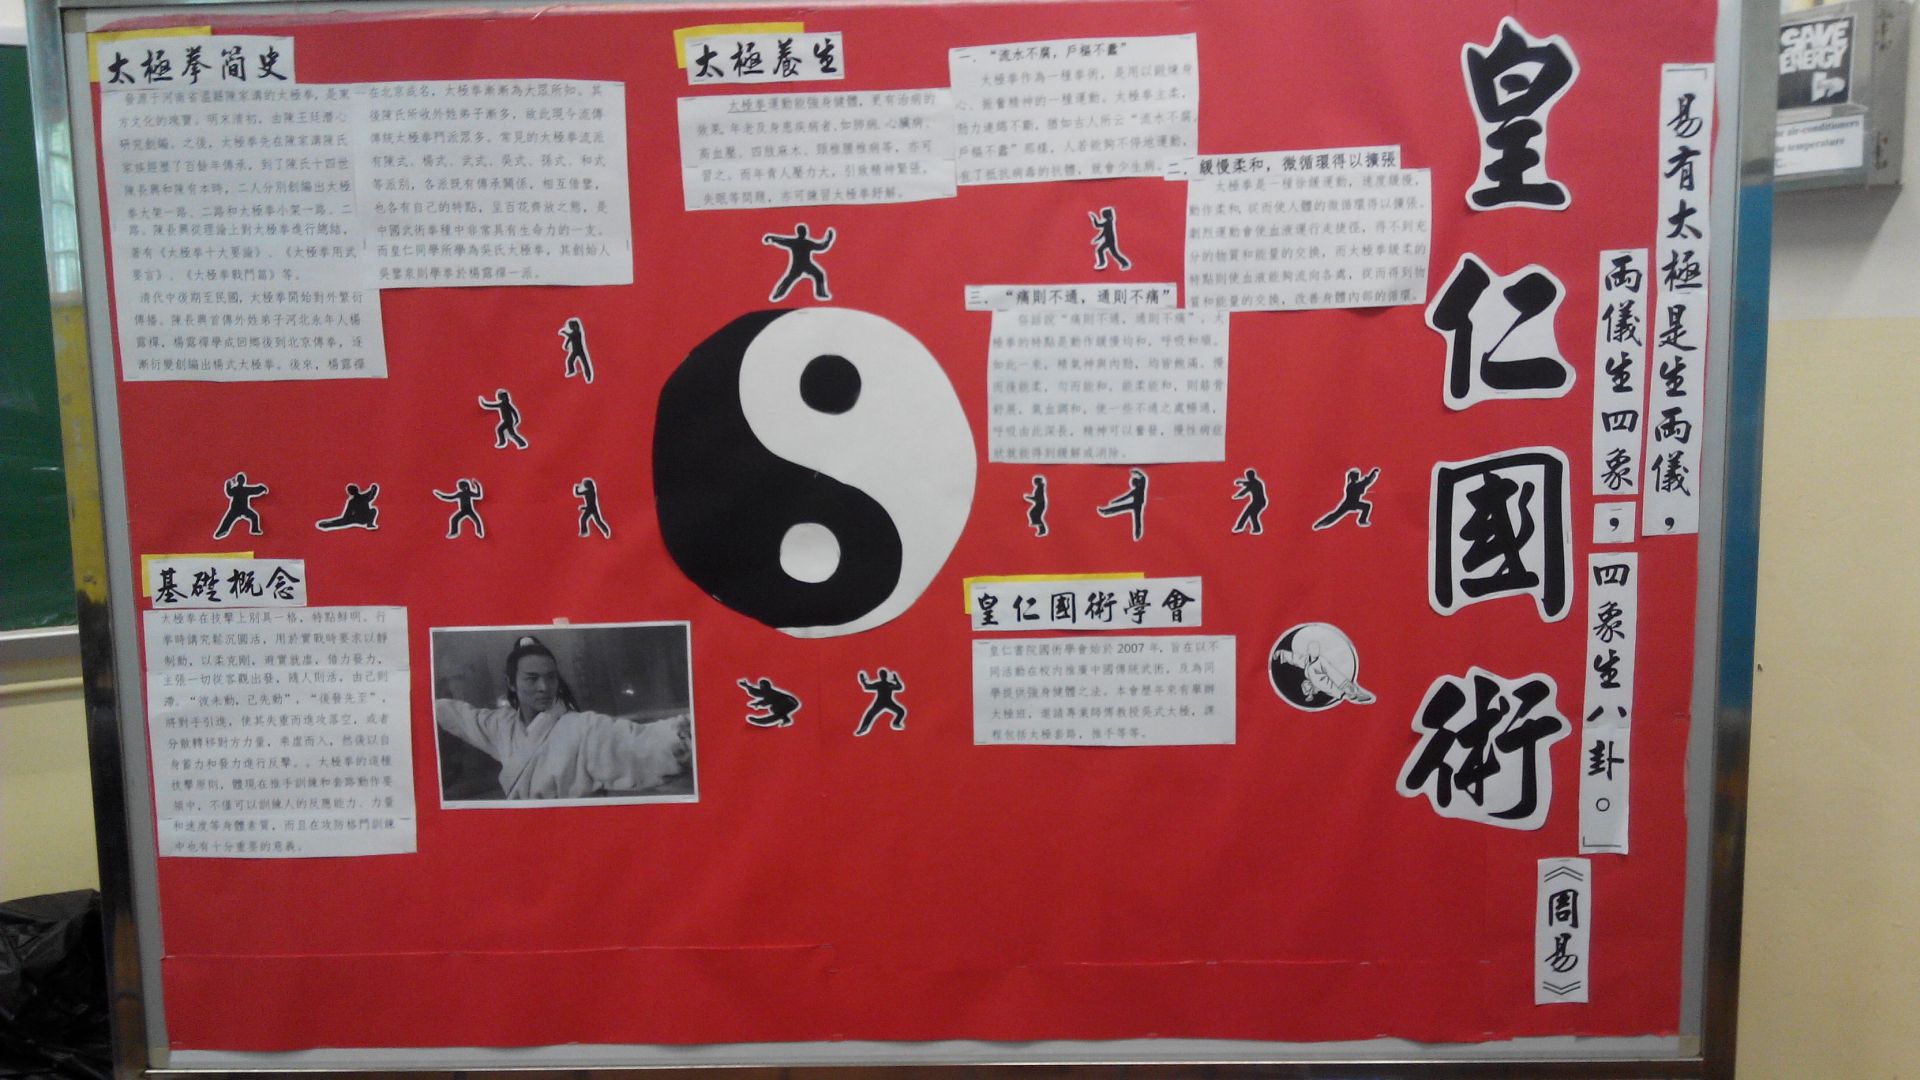 太極拳簡史
發源于河南省溫縣陳家溝的太極拳，是東
方文化的瑰寶。明末清初，由陳王廷潛心
研究創編。之後，太極拳先在陳家溝陳氏
家族經歷了百餘年傳承，到了陳氏十四世
陳長興和陳有本時，二人分別創編出太極
拳大架一路、二路和太極拳小架一路、二
路。陳長興從理論上對太極拳進行總結，
著有《太極拳十大要論》、《太極拳用武
要言》、《太極拳戰鬥篇》等。
清代中後期至民國，太極拳開始對外繁衍
傳播。陳長興首傳外姓弟子河北永年人楊
露禪，楊露禪學成回鄉後到北京傳拳，逐
漸衍變創編出楊式太極拳。後來，楊露禪
在北京成名，太極拳漸漸為大眾所知。其
後陳氏所收外姓弟子漸多，故此現今流傳
傳統太極拳門派眾多。常見的太極拳流派
有陳式、楊式、武式、吳式、孫式、和式
等派別，各派既有傳承關係，相互借鑒，
也各有自己的特點，呈百花齊放之態，是
中國武術拳種中非常具有生命力的一支。
而皇仁同學所學為吳氏太極拳，其創始人
吳鑒泉則學拳於楊露禪一派。
太極養生
太極拳運動能強身健體，更有治病的
效果。年老及身患疾病者，如肺病、心臟病、
高血壓、四肢麻木、頸椎腰椎病等，亦可
習之。而年青人壓力大，引致精神緊張，
失眠等問題，亦可練習太極拳舒解。
一．“流水不腐，戶樞不蠹”
太極拳作為一種拳術，是用以鍛煉身
心、振奮精神的一種運動。太極拳主柔，
動力連綿不斷，猶如古人所云“流水不腐，
戶樞不蠹”那樣，人若能夠不停地運動，
有了抵抗病毒的抗體，就會少生病。
二．緩慢柔和，微循環得以擴張
太極拳是一種徐緩運動，速度緩慢，
動作柔和，從而使人體的微循環得以擴張。
劇烈運動會使血液運行走捷徑，得不到充
分的物質和能量的交換，而太極拳緩柔的
特點則使血液能夠流向各處，從而得到物
質和能量的交換，改善身體內部的循環。
三．“痛則不通，通則不痛”
俗話說“痛則不通，通則不痛”。太
極拳的特點是動作緩慢均和，呼吸和順。
如此一來，精氣神與內勁，均皆飽滿。慢
而後能柔，勻而能和，能柔能和，則筋骨
舒展，氣血調和，使一些不通之處暢通，
呼吸由此深長，精神可以奮發，慢性病症
狀就能得到緩解或消除。
基礎概念
太極拳在技擊上別具一格，特點鮮明。行
拳時講究鬆沉圓活，用於實戰時要求以靜
制動，以柔克剛，避實就虛，借力發力，
主張一切從客觀出發，隨人則活，由己則
滯。“彼未動，己先動”，“後發先至”，
將對手引進，使其失重而進攻落空，或者
分散轉移對方力量，乘虛而入，然後以自
身蓄力和發力進行反擊。。太極拳的這種
技擊原則，體現在推手訓練和套路動作要
領中，不僅可以訓練人的反應能力、力量
和速度等身體素質，而且在攻防格鬥訓練
中也有十分重要的意義。
皇仁國術學會
皇仁書院國術學會始於 2007 年，旨在以不
同活動在校內推廣中國傳統武術，及為同
學提供強身健體之法。本會歷年來有舉辦
太極班，邀請專業師傅教授吳式太極，課
程包括太極套路，推手等等。
皇仁國術
「易有太極是生兩儀，
兩儀生四象，四象生八卦。」
《周易》
SAVE
ENERGY
the air-conditioners
the temperature